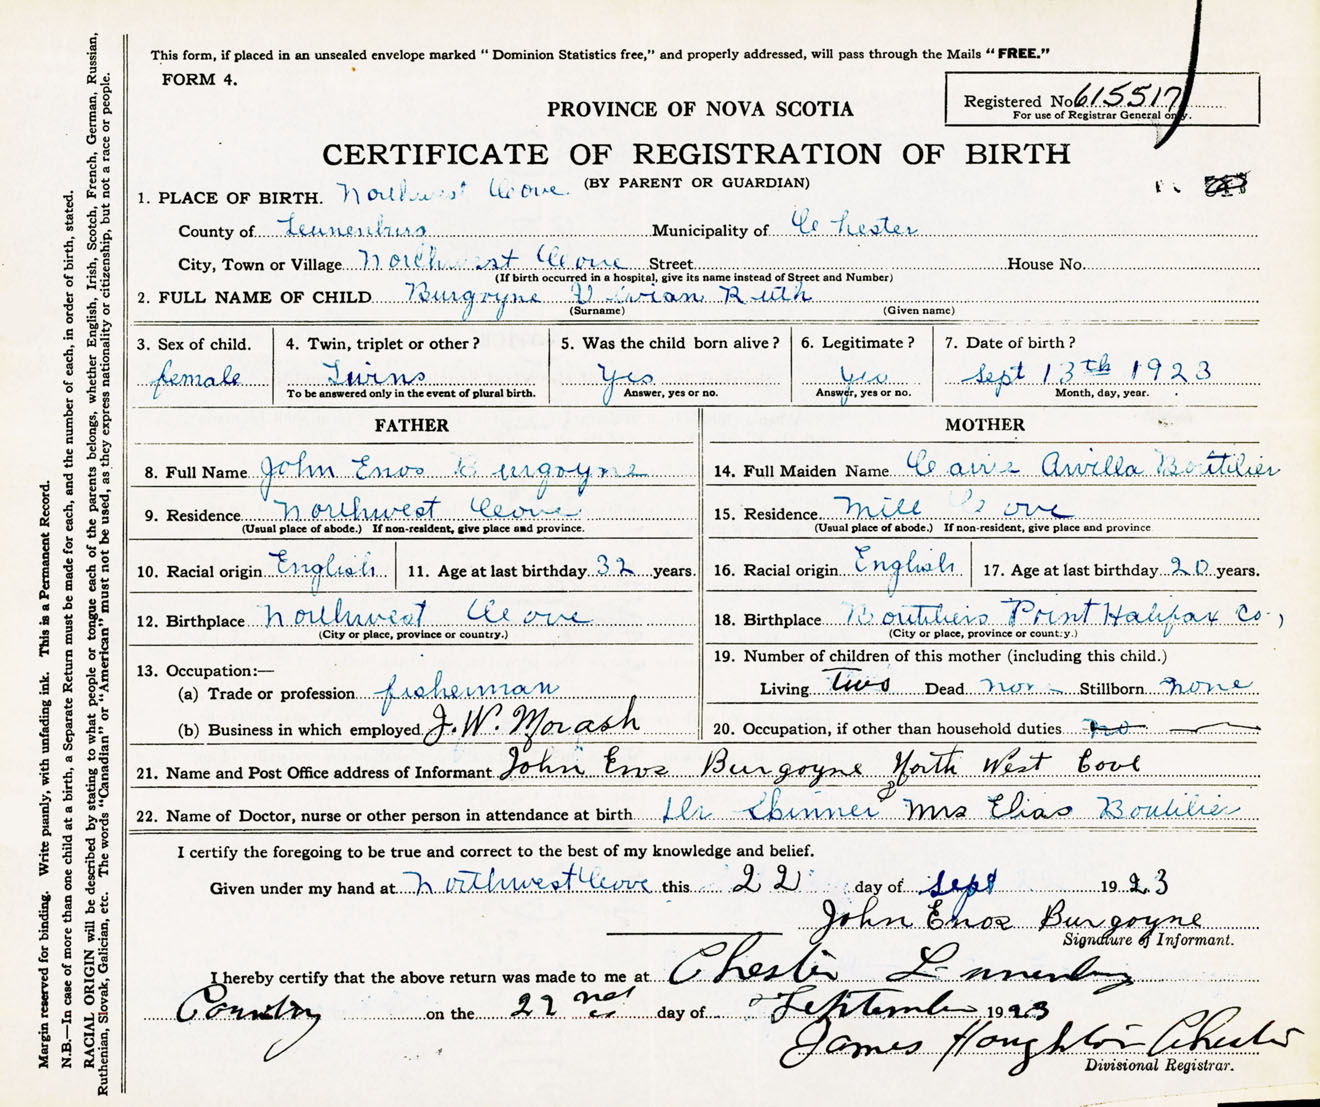 This form, if placed in an unsealed envelope marked "Dominion Statistics free," and properly addressed, will pass through the Mails "FREE."
FORM 4.
Registered No. 615517
For use of Registrar General only.
PROVINCE OF NOVA SCOTIA
CERTIFICATE OF REGISTRATION OF BIRTH
(BY PARENT OR GUARDIAN)
1. PLACE OF BIRTH. Northwest Cove
County of Lunenburg Municipality of Chester
City, Town or Village Northwest Cove Street House No.
(If birth occurred in a hospital, give its name instead of Street and Number)
2. FULL NAME OF CHILD Burgoyne Vivian Ruth
(Surname) (Given name)
3. Sex of child. 4. Twin, triplet or other? 5. Was the child born alive? 6. Legitimate? 7. Date of birth?
female Twins Yes Yes Sept 13th 1923
To be answered only in the event of plural birth. Answer, yes or no. Answer, yes or no. Month, day, year.
FATHER MOTHER
8. Full Name John Enos Burgoyne 14. Full Maiden Name Arvilla Boutilier
9. Residence Northwest Cove 15. Residence Mill Cove
(Usual place of abode.) If non-resident, give place and province. (Usual place of abode.) If non-resident, give place and province
10. Racial origin English 11. Age at last birthday 32 years. 16. Racial origin English 17. Age at last birthday 20 years.
12. Birthplace Northwest Cove 18. Birthplace Boutiliers Point Halifax Co,
(City or place, province or country.) (City or place, province or country.)
13. Occupation:— 19. Number of children of this mother (including this child.)
(a) Trade or profession fisherman Living Two Dead non Stillborn none
(b) Business in which employed J. W. Morash 20. Occupation, if other than household duties no
21. Name and Post Office address of Informant John Enos Burgoyne North West Cove
22. Name of Doctor, nurse or other person in attendance at birth Dr Skinner & Mrs Elias Boutilier
I certify the foregoing to be true and correct to the best of my knowledge and belief.
Given under my hand at Northwest Cove this 22 day of Sept 1923
John Enos Burgoyne
Signature of Informant.
I hereby certify that the above return was made to me at Chester Lunenburg
County on the 22nd day of September 1923
James Houghton Chester
Divisional Registrar.
Margin reserved for binding. Write plainly, with unfading ink. This is a Permanent Record.
N.B.—In case of more than one child at a birth, a Separate Return must be made for each, and the number of each, in order of birth, stated.
RACIAL ORIGIN will be described by stating to what people or tongue each of the parents belongs, whether English, Irish, Scotch, French, German, Russian,
Ruthenian, Slovak, Galician, etc. The words "Canadian" or "American" must not be used, as they express nationality or citizenship, but not a race or people.